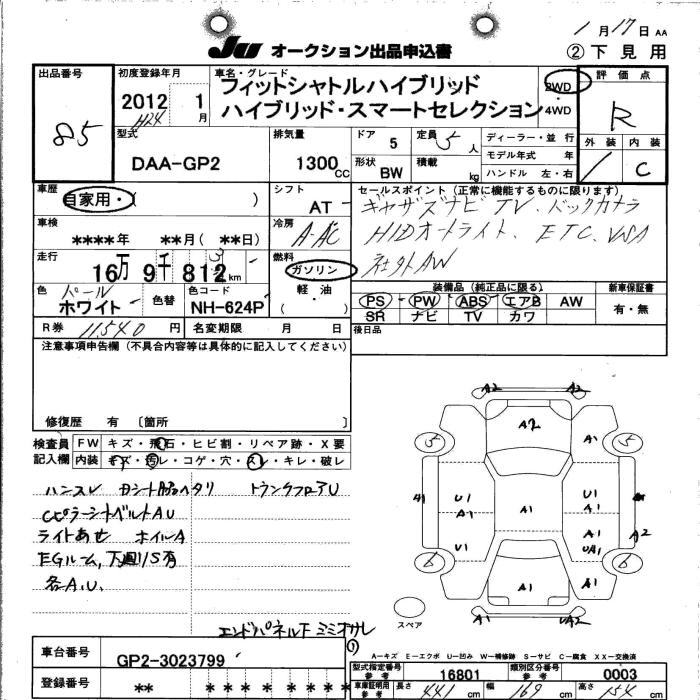 1月17日 AA
JU オークション出品申込書
② 下見用
出品番号 85
初度登録年月 2012 H24 1月
車名・グレード
フィットシャトルハイブリッド
ハイブリッド・スマートセレクション
2WD
4WD
評価点 R
外装 内装 C
型式 DAA-GP2
排気量 1300 CC
ドア 5
定員 5人
形状 BW
積載 kg
ディーラー・並行
モデル年式 年
ハンドル 左・右
車歴 自家用・( )
シフト AT
セールスポイント(正常に機能するものに限ります)
ギャザズナビ TV、バックカメラ
HIDオートライト、ETC、VSA
社外AW
車検 ****年 **月(**日)
冷房 A-AC
走行 16万9千812km 3
燃料 ガソリン
軽・油
( )
色 パール ホワイト
色替
色コード NH-624P
装備品(純正品に限る)
PS PW ABS エアB AW
SR ナビ TV カワ
新車保証書
有・無
R券 11540円
名変期限 月 日
後日品
注意事項申告欄(不具合内容等は具体的に記入してください)
修復歴 有 〔箇所 〕
検査員記入欄
FW キズ・飛石・ヒビ割・リペア跡・X要
内装 キズ・汚レ・コゲ・穴・スレ・キレ・破レ
ハンスレ トランクフロアU
CピラーシートベルトAU
ライトあせ ホイルA
EGルーム、下廻りS有
各A.U.
エンドパネル下
A2 A2
A2
A1
5 5
U1 A1
A1
U1 A1
A1 A2
U1 UA1
6 6
A1 A1
A2 UA2
スペア
A-キズ E-エクボ U-凹み W-補修跡 S-サビ C-腐食 XX-交換済
車台番号 GP2-3023799
登録番号 ** * * * * *
型式指定番号 参考 16801
類別区分番号 参考 0003
車庫証明用 参考 長さ 441 cm 幅 169 cm 高さ 154 cm